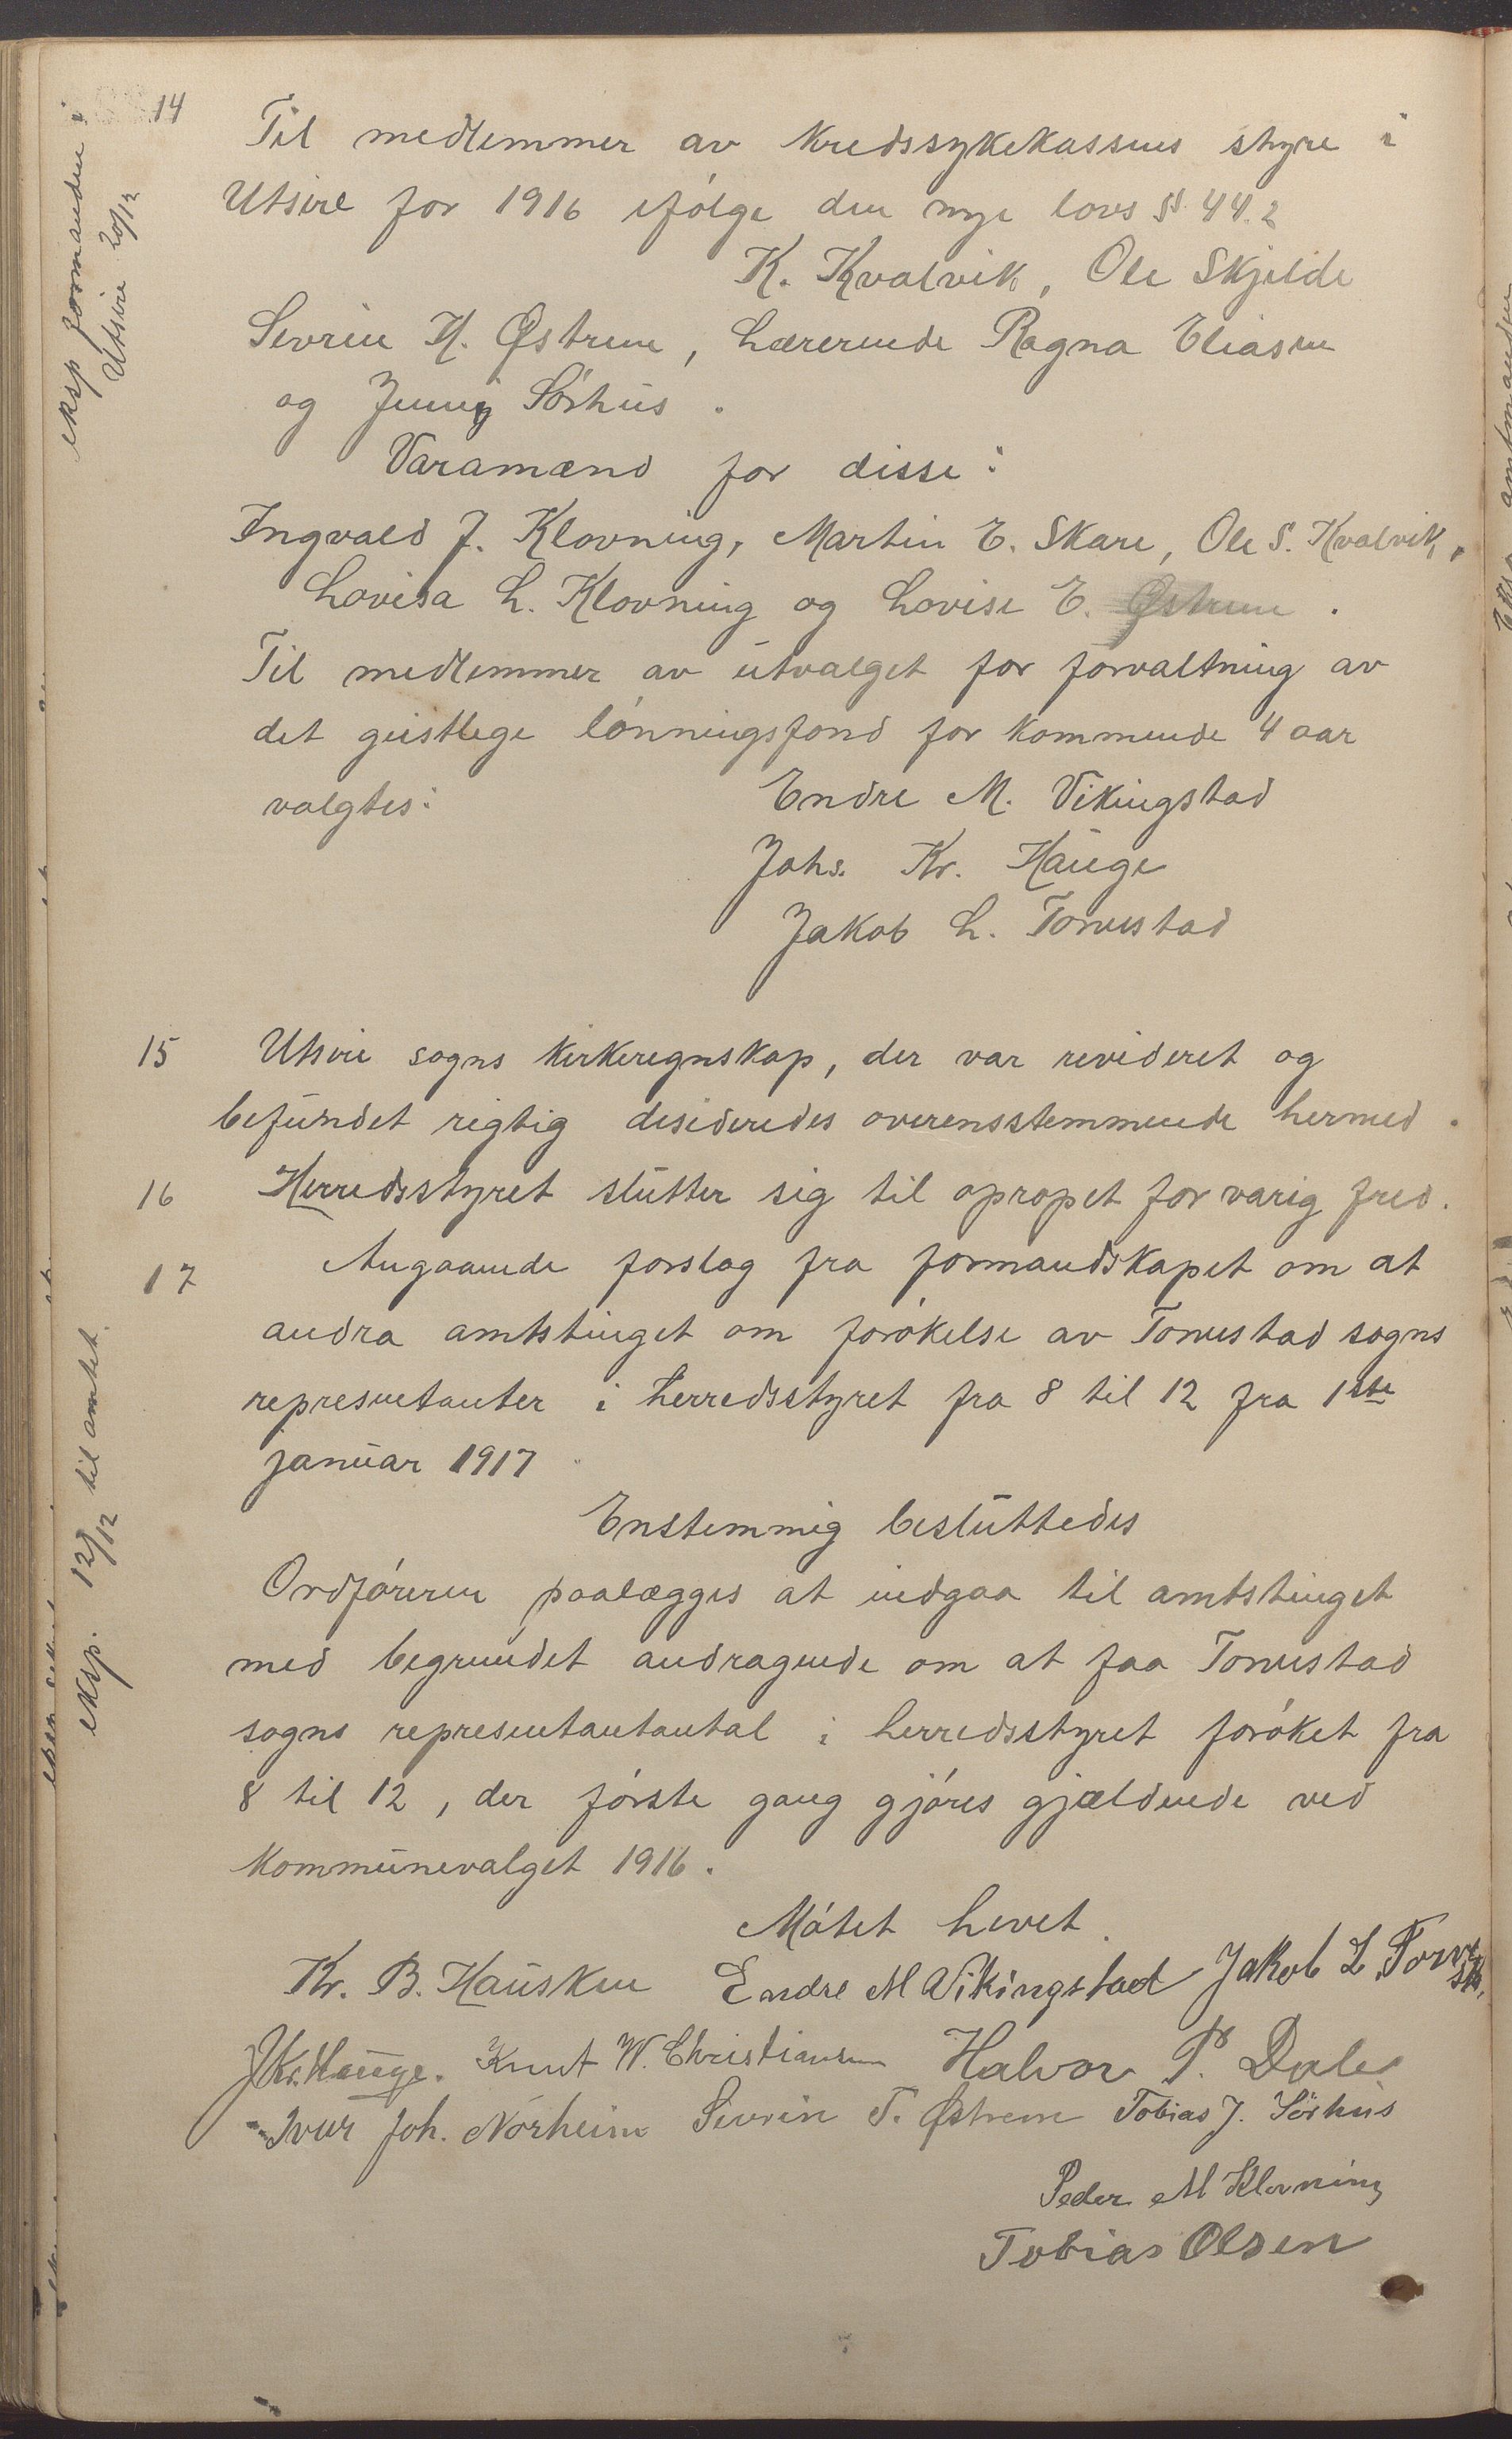 14
Til medlemmer av kredssykekassens styre i
Utsire for 1916 ifølge den nye lovs §§ 44.2
K. Kvalvik, Ole Skjelde
Sevrin H. Østrem, Lærerinde Ragna Eliasen
og Jenny Sørhus.
Varamænd for disse:
Ingvald J. Klovning, Martin E. Skare, Ole S. Kvalvik,
Lovisa L. Klovning og Lovise E. Østrem.
Til medlemmer av utvalget for forvaltning av
det geistlege lønningsfond for kommende 4 aar
valgtes: Endre M. Vikingstad
Johs. Kr. Hauge
Jakob L. Torvestad
eksp formanden i
Utsire 20/12
15 Utsire sogns kirkeregnskap, der var revideret og
befundet rigtig desideredes overensstemmende hermed.
16 Herredsstyret slutter sig til opropet for varig fred.
17 Angaaende forslag fra formandskapet om at
andra amtstinget om forøkelse av Torvestad sogns
representanter i herredsstyret fra 8 til 12 fra 1ste
januar 1917
Enstemmig besluttedes
Ordføreren paalægges at indgaa til amtstinget
med begrundet andragende om at faa Torvestad
sogns representantantal i herredsstyret forøket fra
8 til 12, der første gang gjøres gjældende ved
kommunevalget 1916.
eksp. 12/12 til amtet.
Møtet hevet.
Kr. B. Hausken Endre M Vikingstad Jakob L Torvestd.
J Kr. Hauge. Knut W. Christiansen Halvor P. Dale
Ivar Joh. Nørheim Sevrin T. Østrem Tobias J. Sörhus
Peder M Klovning
Tobias Olsen